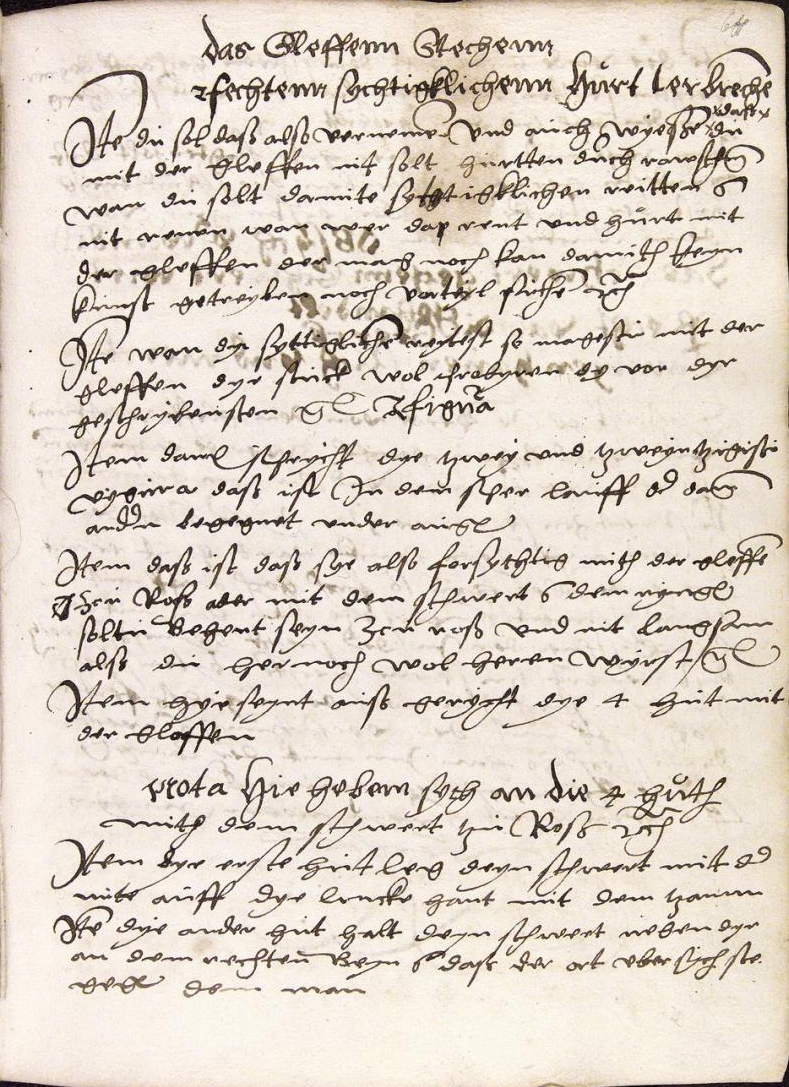 das Gleffenn Stechenn
Rfechtenn sychtigklichenn hürt ler breche
Ite du sol daß also vernemen Und auch wyeße daß du
mit der gleffen nit solt hürtten duch
wan du solt damite sychtigklichen reitten
nit renen wan wer dar rent und hürt mit
der gleffen der mag noch kan damith keyn
kunst getreyben noch vorteyl suchen
Ite wan dw syttigliche reytest so magestu mit der
gleffen dye stuck wol probyren dy vor dyr
geschrybensten
Item darnach spricht dye zwey und zweyntzigisti
vygura daß ist In dem sper lauff
andern begegnet under augen
Item daß ist daß sye also forsychtig mith der gleffen
Zcu Roß ader mit dem schwert dem ryngen
soltu behent seyn Zcu roß und nit langsam
alß du hernoch wol heren wyrst
Item hye seynt auß gericht dye 4 hut mit
der gleffen
Nota Hie hebenn sych an die 4 hüth
mith dem schwert tzu Roß
Item dye erste hut leg deyn schwert mit der
mite auff dye lincke hant mit dem tzaum
Ite dye ander hut halt deyn schwert neben dyr
an dem rechten beyn daß der ort uber sych ste
gegen dem man